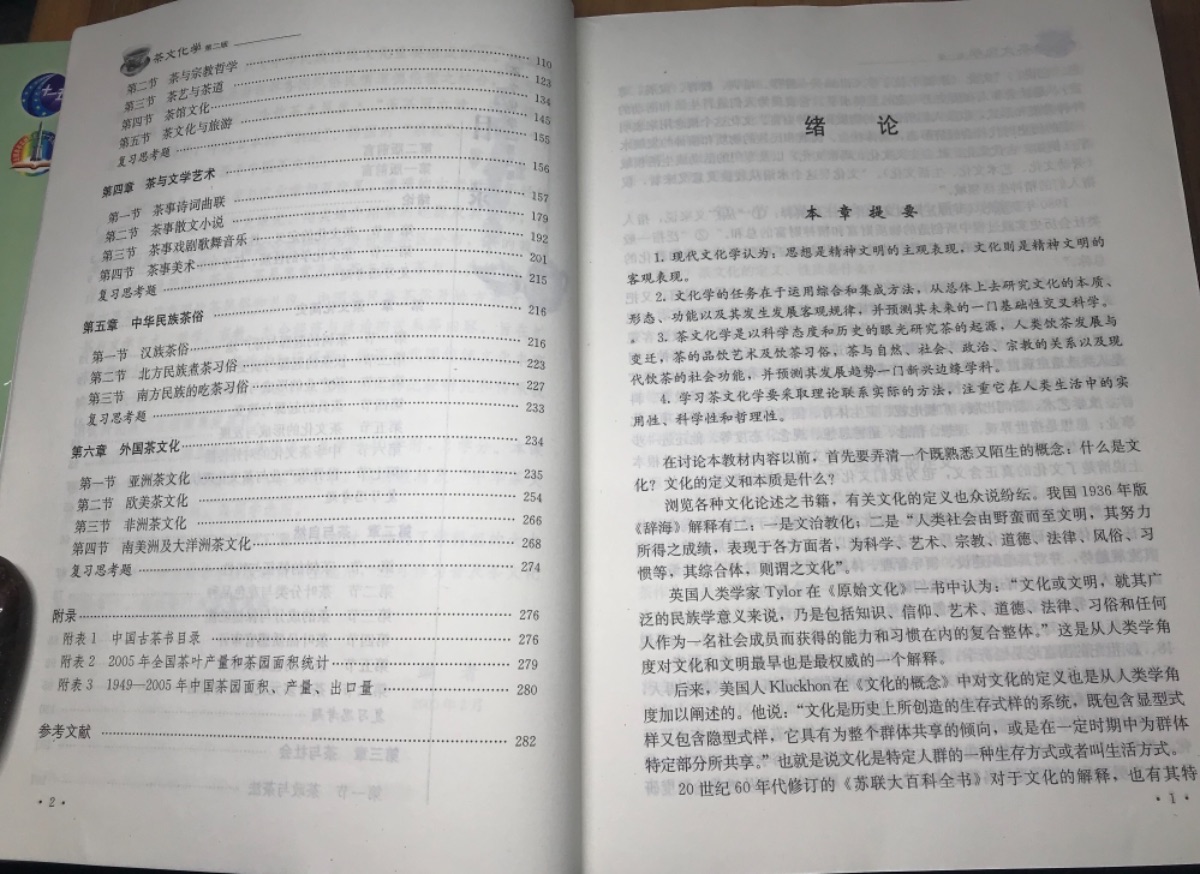 茶文化学 第二版
第二节 茶与宗教哲学 110
第三节 茶艺与茶道 123
第四节 茶馆文化 134
第五节 茶文化与旅游 145
复习思考题 155
第四章 茶与文学艺术 156
第一节 茶事诗词曲联 157
第二节 茶事散文小说 179
第三节 茶事戏剧歌舞音乐 192
第四节 茶事美术 201
复习思考题 215
第五章 中华民族茶俗 216
第一节 汉族茶俗 216
第二节 北方民族煮茶习俗 223
第三节 南方民族的吃茶习俗 227
复习思考题 233
第六章 外国茶文化 234
第一节 亚洲茶文化 235
第二节 欧美茶文化 254
第三节 非洲茶文化 266
第四节 南美洲及大洋洲茶文化 268
复习思考题 274
附录 276
附表1 中国古茶书目录 276
附表2 2005年全国茶叶产量和茶园面积统计 279
附表3 1949—2005年中国茶园面积、产量、出口量 280
参考文献 282
·2·
绪 论
本章提要
1. 现代文化学认为：思想是精神文明的主观表现，文化则是精神文明的
客观表现。
2. 文化学的任务在于运用综合和集成方法，从总体上去研究文化的本质、
形态、功能以及其发生发展客观规律，并预测其未来的一门基础性交叉科学。
3. 茶文化学是以科学态度和历史的眼光研究茶的起源，人类饮茶发展与
变迁，茶的品饮艺术及饮茶习俗，茶与自然、社会、政治、宗教的关系以及现
代饮茶的社会功能，并预测其发展趋势一门新兴边缘学科。
4. 学习茶文化学要采取理论联系实际的方法，注重它在人类生活中的实
用性、科学性和哲理性。
在讨论本教材内容以前，首先要弄清一个既熟悉又陌生的概念：什么是文
化？文化的定义和本质是什么？
浏览各种文化论述之书籍，有关文化的定义也众说纷纭。我国1936年版
《辞海》解释有二：一是文治教化；二是“人类社会由野蛮而至文明，其努力
所得之成绩，表现于各方面者，为科学、艺术、宗教、道德、法律、风俗、习
惯等，其综合体，则谓之文化”。
英国人类学家Tylor在《原始文化》一书中认为：“文化或文明，就其广
泛的民族学意义来说，乃是包括知识、信仰、艺术、道德、法律、习俗和任何
人作为一名社会成员而获得的能力和习惯在内的复合整体。”这是从人类学角
度对文化和文明最早也是最权威的一个解释。
后来，美国人Kluckhon在《文化的概念》中对文化的定义也是从人类学角
度加以阐述的。他说：“文化是历史上所创造的生存式样的系统，既包含显型式
样又包含隐型式样，它具有为整个群体共享的倾向，或是在一定时期中为群体
特定部分所共享。”也就是说文化是特定人群的一种生存方式或者叫生活方式。
20世纪60年代修订的《苏联大百科全书》对于文化的解释，也有其特
·1·